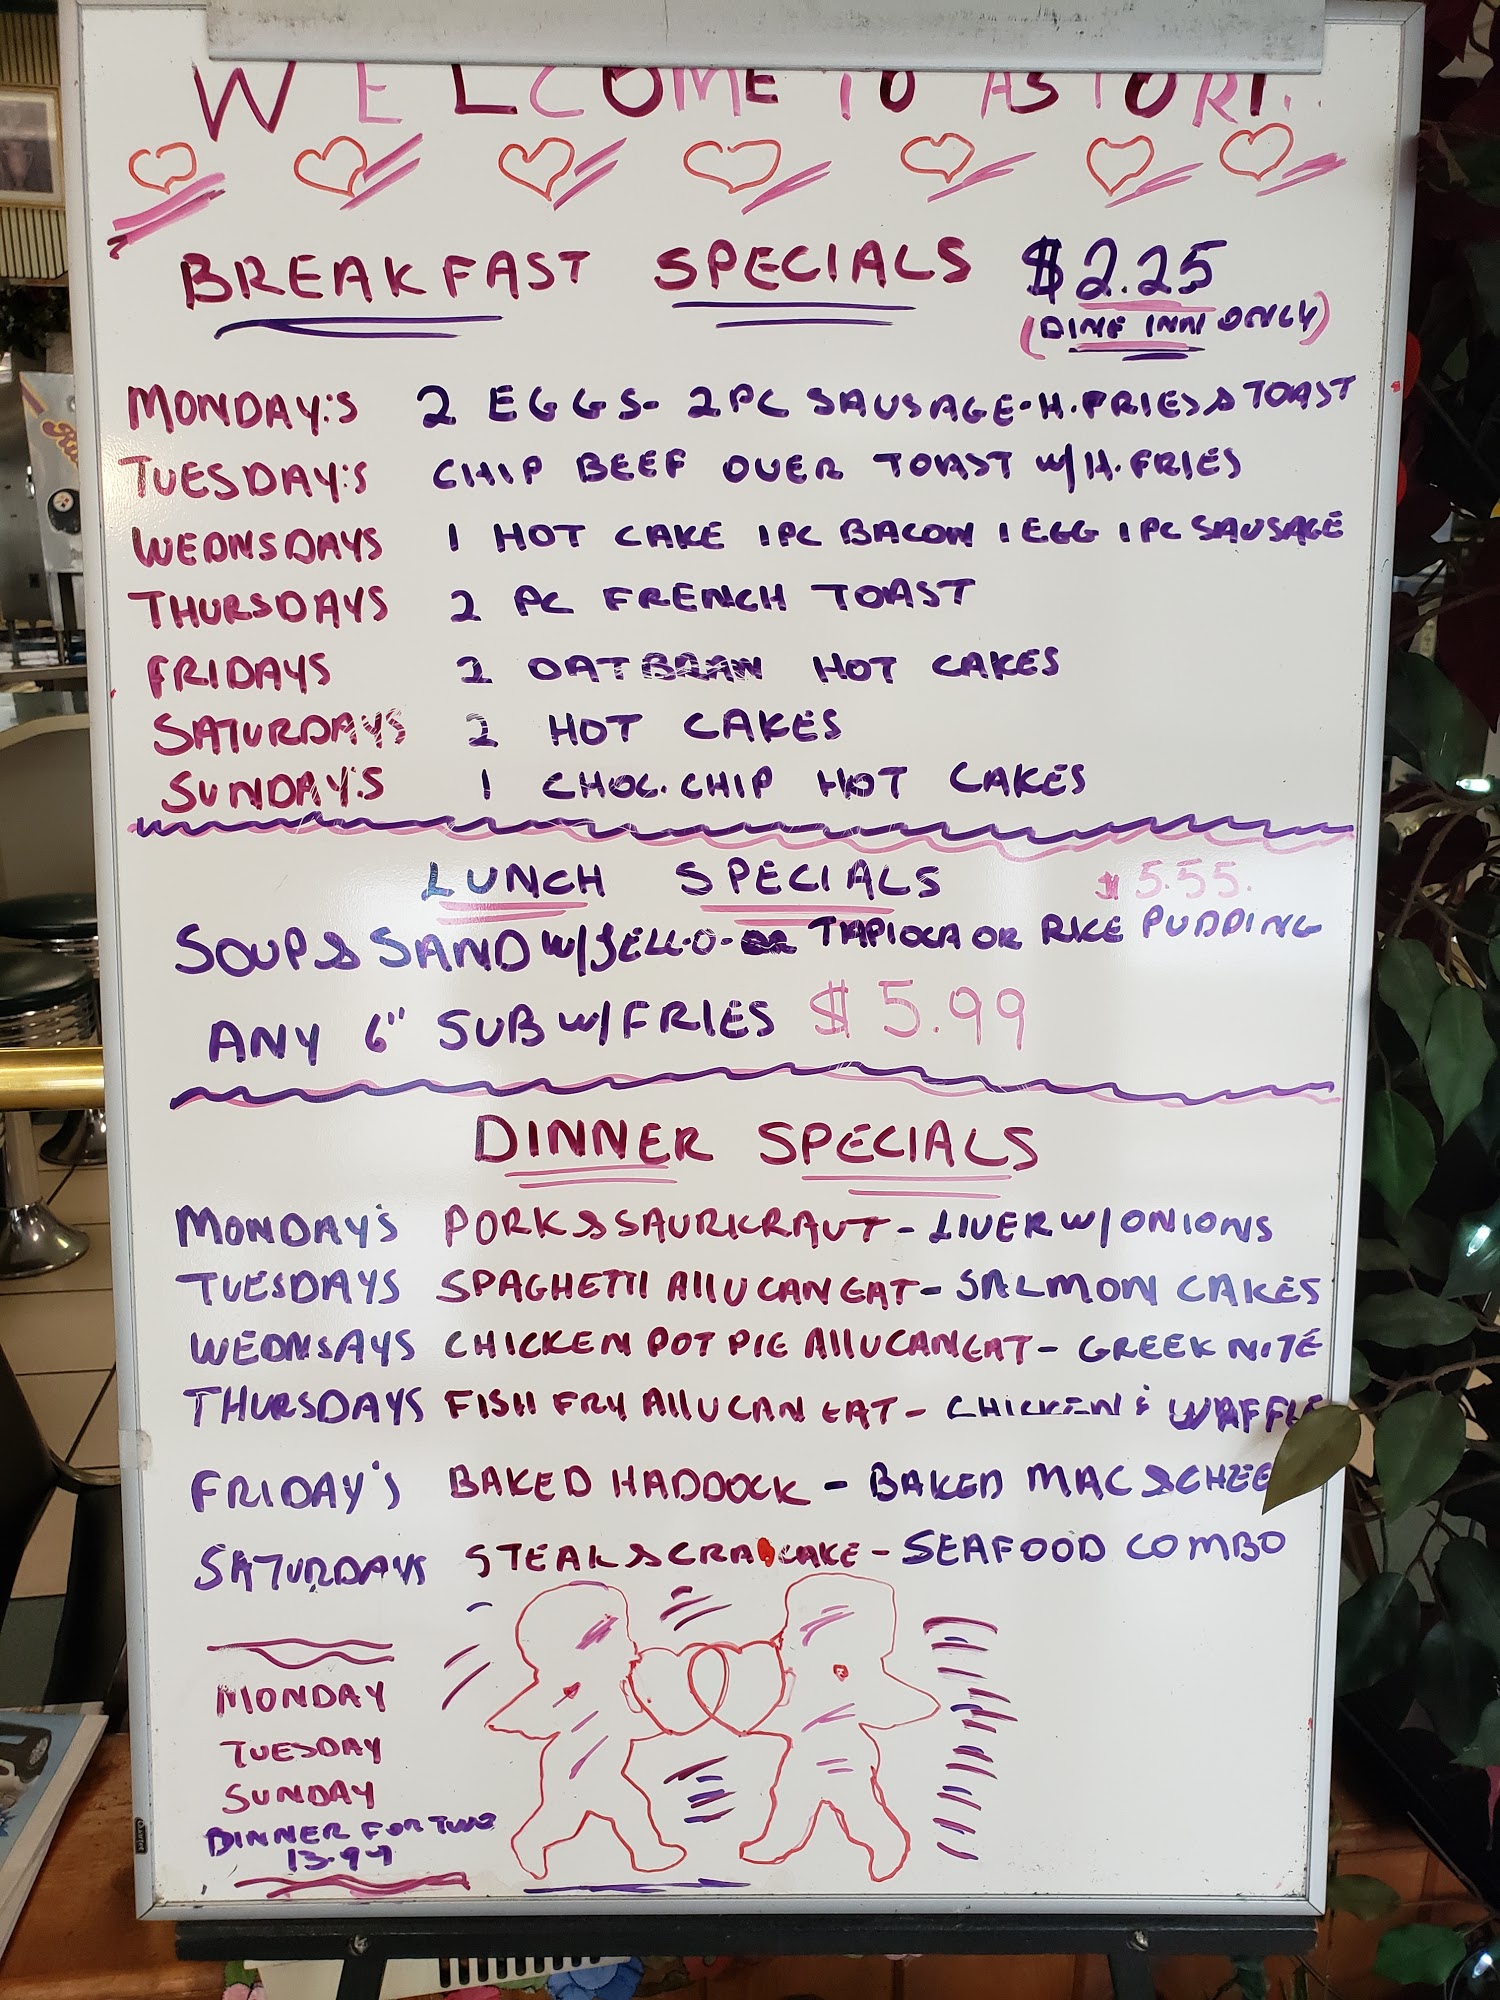 WELCOME TO ASTORI
BREAKFAST SPECIALS $2.25
(DINE INN ONLY)
MONDAY'S 2 EGGS- 2PC SAUSAGE-H.FRIES & TOAST
TUESDAY'S CHIP BEEF OVER TOAST W/H.FRIES
WEDNSDAYS 1 HOT CAKE 1PC BACON 1 EGG 1PC SAUSAGE
THURSDAYS 2 PC FRENCH TOAST
FRIDAYS 2 OATBRAN HOT CAKES
SATURDAYS 2 HOT CAKES
SUNDAY'S 1 CHOC.CHIP HOT CAKES
LUNCH SPECIALS $5.55.
SOUP & SAND W/JELL-O- OR TAPIOCA OR RICE PUDDING
ANY 6" SUB W/FRIES $5.99
DINNER SPECIALS
MONDAY'S PORK & SAURKRAUT - LIVER W/ONIONS
TUESDAYS SPAGHETTI All U CAN EAT - SALMON CAKES
WEDNSAYS CHICKEN POT PIE All U CAN EAT - GREEK NITE
THURSDAYS FISH FRY All U CAN EAT - CHICKEN & WAFFLE
FRIDAY'S BAKED HADDOCK - BAKED MAC & CHEE
SATURDAYS STEAK & CRABCAKE - SEAFOOD COMBO
MONDAY
TUESDAY
SUNDAY
DINNER FOR TWO
13.99
Quartet